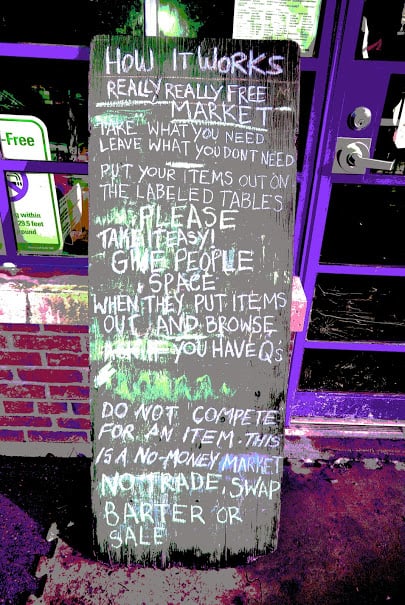 HOW IT WORKS
REALLY REALLY FREE
MARKET
TAKE WHAT YOU NEED
LEAVE WHAT YOU DONT NEED
PUT YOUR ITEMS OUT ON
THE LABELED TABLES
PLEASE
TAKE IT EASY!
GIVE PEOPLE
SPACE
WHEN THEY PUT ITEMS
OUT AND BROWSE
IF YOU HAVE Qs
DO NOT COMPETE
FOR AN ITEM. THIS
IS A NO-MONEY MARKET
NO TRADE, SWAP
BARTER OR
SALE
-Free
g within
29.5 feet
ound